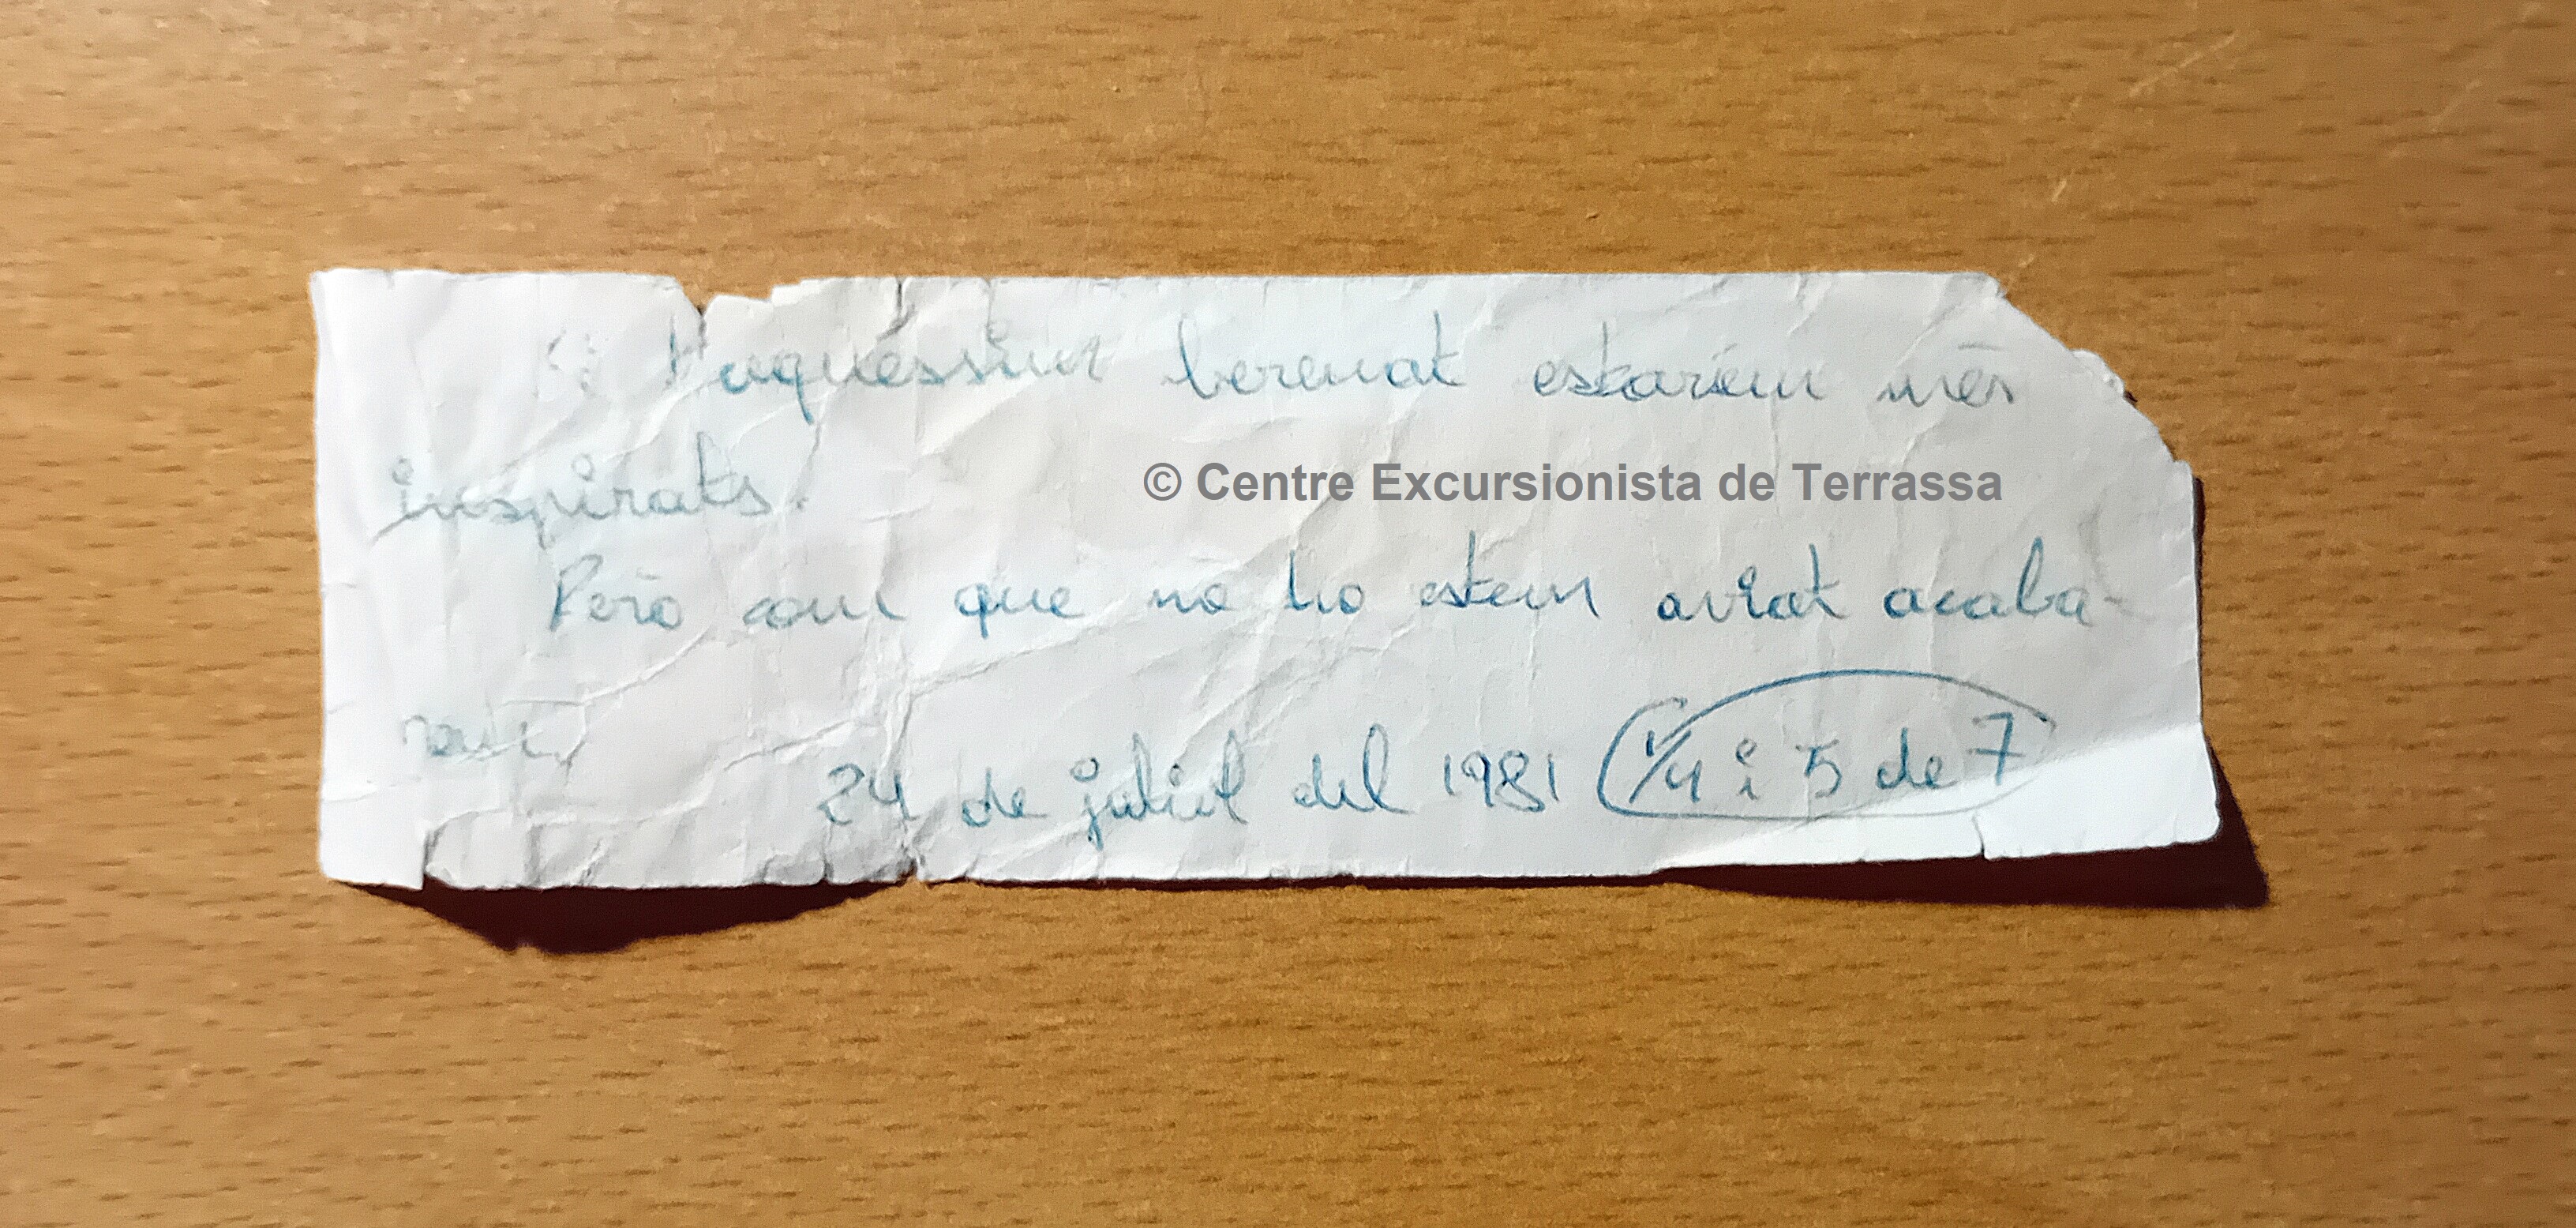 Si haguéssim berenat estaríem més
inspirats.
© Centre Excursionista de Terrassa
Però com que no ho estem aviat acaba-
rem.
24 de juliol del 1981 (1/4 i 5 de 7